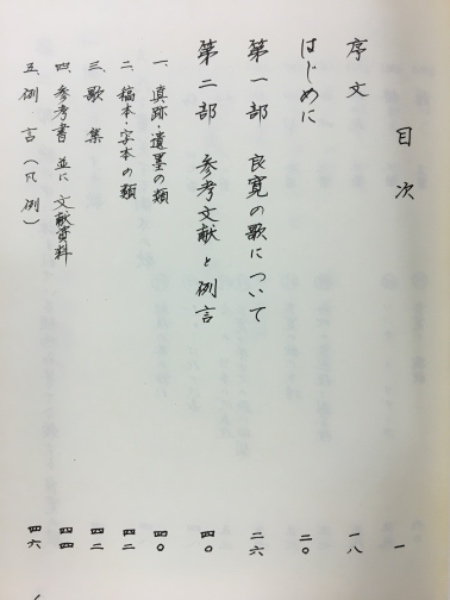 目次 一
序文 一八
はじめに 二〇
第一部 良寛の歌について 二六
第二部 参考文献と例言 四〇
一、真跡・遺墨の類 四〇
二、稿本・写本の類 四二
三、歌集 四二
四、参考書並に文献資料 四四
五、例・言(凡例) 四六